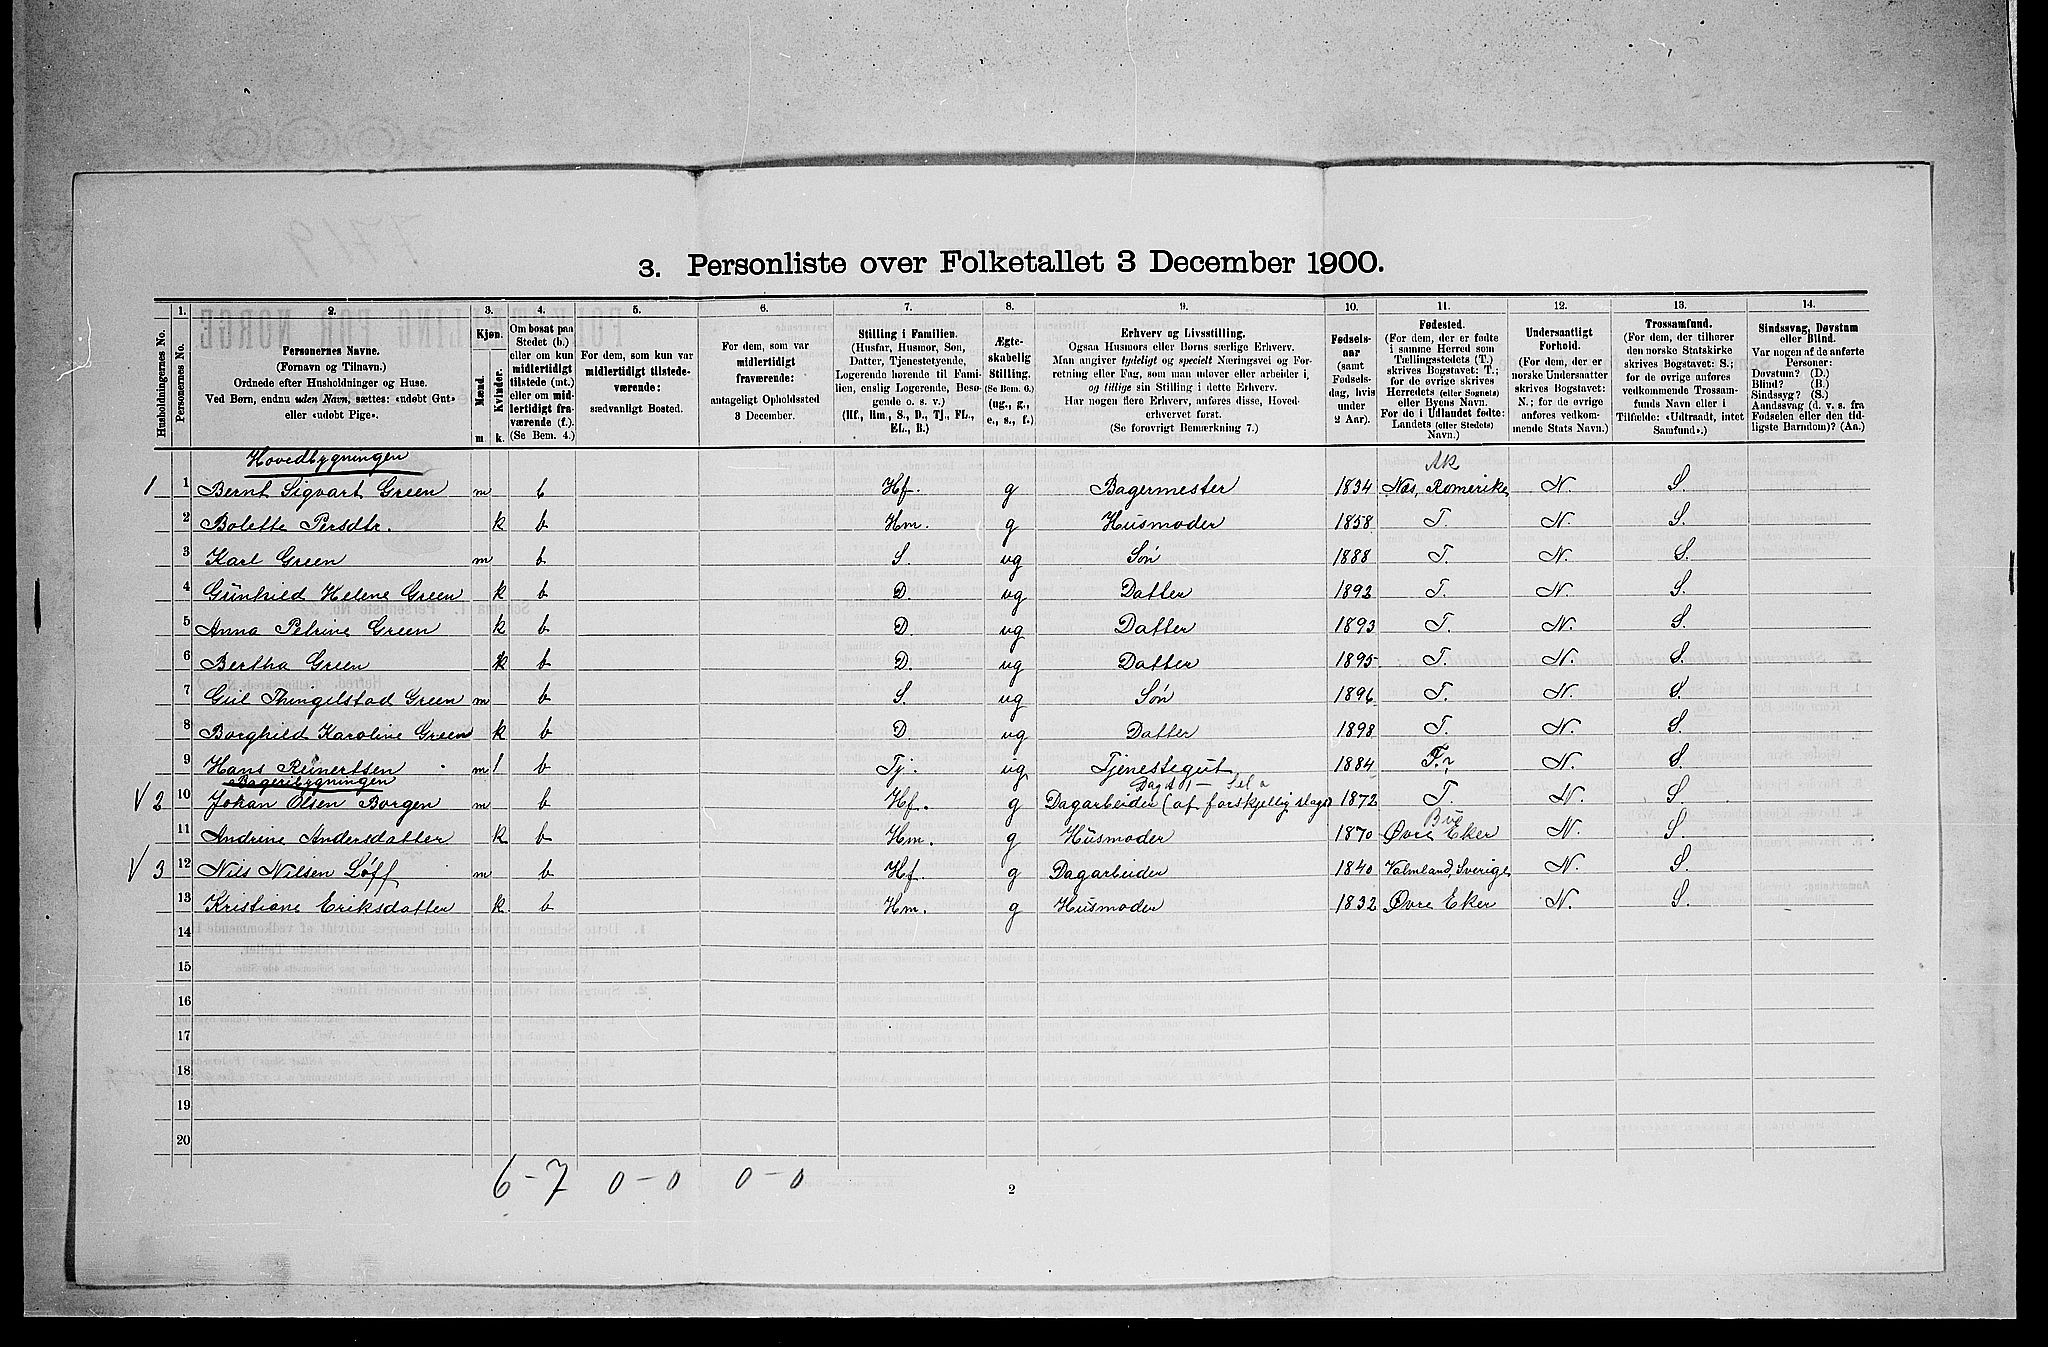 3. Personliste over Folketallet 3 December 1900.
1. 2. 3. 4. 5. 6. 7. 8. 9. 10. 11. 12. 13. 14.
Husholdningernes No.
Personernes No.
Personernes Navne.
(Fornavn og Tilnavn.)
Ordnede efter Husholdninger og Huse.
Ved Børn, endnu uden Navn, sættes: «udøbt Gut»
eller «udøbt Pige».
Kjøn.
Mænd.
Kvinder.
m. k.
Om bosat paa
Stedet (b.)
eller om kun
midlertidigt
tilstede (mt.)
eller om mid-
lertidigt fra-
værende (f.).
(Se Bem. 4.)
For dem, som kun var
midlertidigt tilstede-
værende:
sædvanligt Bosted.
For dem, som var
midlertidigt
fraværende:
antageligt Opholdssted
3 December.
Stilling i Familien.
(Husfar, Husmor, Søn,
Datter, Tjenestetyende,
Logerende hørende til Fami-
lien, enslig Logerende, Besø-
gende o. s. v.)
(Hf., Hm., S., D., Tj., FL.,
EL., B.)
Ægte-
skabelig
Stilling.
(Se Bem. 6.)
(ug., g.,
e., s., f.)
Erhverv og Livsstilling.
Ogsaa Husmors eller Børns særlige Erhverv.
Man angiver tydeligt og specielt Næringsvei og For-
retning eller Fag, som man udøver eller arbeider i,
og tillige sin Stilling i dette Erhverv.
Har nogen flere Erhverv, anføres disse, Hoved-
erhvervet først.
(Se forøvrigt Bemærkning 7.)
Fødsels-
aar
(samt
Fødsels-
dag, hvis
under
2 Aar).
Fødested.
(For dem, der er fødte
i samme Herred som
Tællingsstedets (T.)
skrives Bogstavet: T.;
for de øvrige skrives
Herredets (eller Sognets)
eller Byens Navn.
For de i Udlandet fødte:
Landets (eller Stedets)
Navn.)
Undersaatligt
Forhold.
(For dem, der er
norske Undersaatter
skrives Bogstavet:
N.; for de øvrige
anføres vedkom-
mende Stats Navn.)
Trossamfund.
(For dem, der tilhører
den norske Statskirke
skrives Bogstavet: S.;
for de øvrige anføres
vedkommende Trossam-
funds Navn eller i
Tilfælde: «Udtraadt, intet
Samfund».)
Sindssvag, Døvstum
eller Blind.
Var nogen af de anførte
Personer:
Døvstum? (D.)
Blind? (B.)
Sindssyg? (S.)
Aandssvag (d. v. s. fra
Fødselen eller den tid-
ligste Barndom)? (Aa.)
Hovedbygningen
Ak
1 1 Bernt Sigvart Green m b Hf. g Bagermester 1834 Næs, Romerike N. S.
2 Bolette Persdtr. k b Hm. g Husmoder 1858 T. N. S.
3 Karl Green m b S. ug Søn 1888 T. N. S.
4 Gunhild Helene Green k b D. ug Datter 1892 T. N. S.
5 Anna Petrine Green k b D. ug Datter 1893 T. N. S.
6 Bertha Green k b D. ug Datter 1895 T. N. S.
7 Thingelstad Green m b S. ug Søn 1896 T. N. S.
8 Borghild Karoline Green k b D. ug Datter 1898 T. N. S.
9 Hans Reinertsen m b Tj. ug Tjenestegut 1884 T. N. S.
Bageribygningen
2 10 Johan Olsen Borgen m b Hf. g Dagarbeider (af forskjellig slags) 1872 T. N. S.
Bu
11 Andrine Andersdatter k b Hm. g Husmoder 1870 Øvre Eker N. S.
3 12 Nils Nilsen Løff m b Hf. g Dagarbeider 1840 Valmland, Sverige N. S.
13 Kristiane Eriksdatter k. b Hm. g Husmoder 1832 Øvre Eker N. S.
14
15
16
17
18
19
20
6-7 0-0 0-0
2